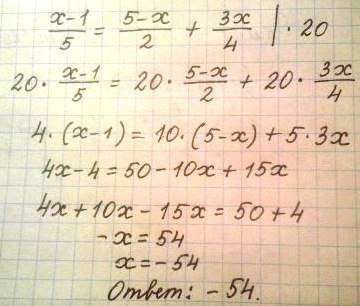 (x-1)/5 = (5-x)/2 + 3x/4 | · 20
20 · (x-1)/5 = 20 · (5-x)/2 + 20 · 3x/4
4·(x-1) = 10·(5-x) + 5·3x
4x-4 = 50-10x+15x
4x+10x-15x = 50+4
-x = 54
x = -54
Ответ: -54.